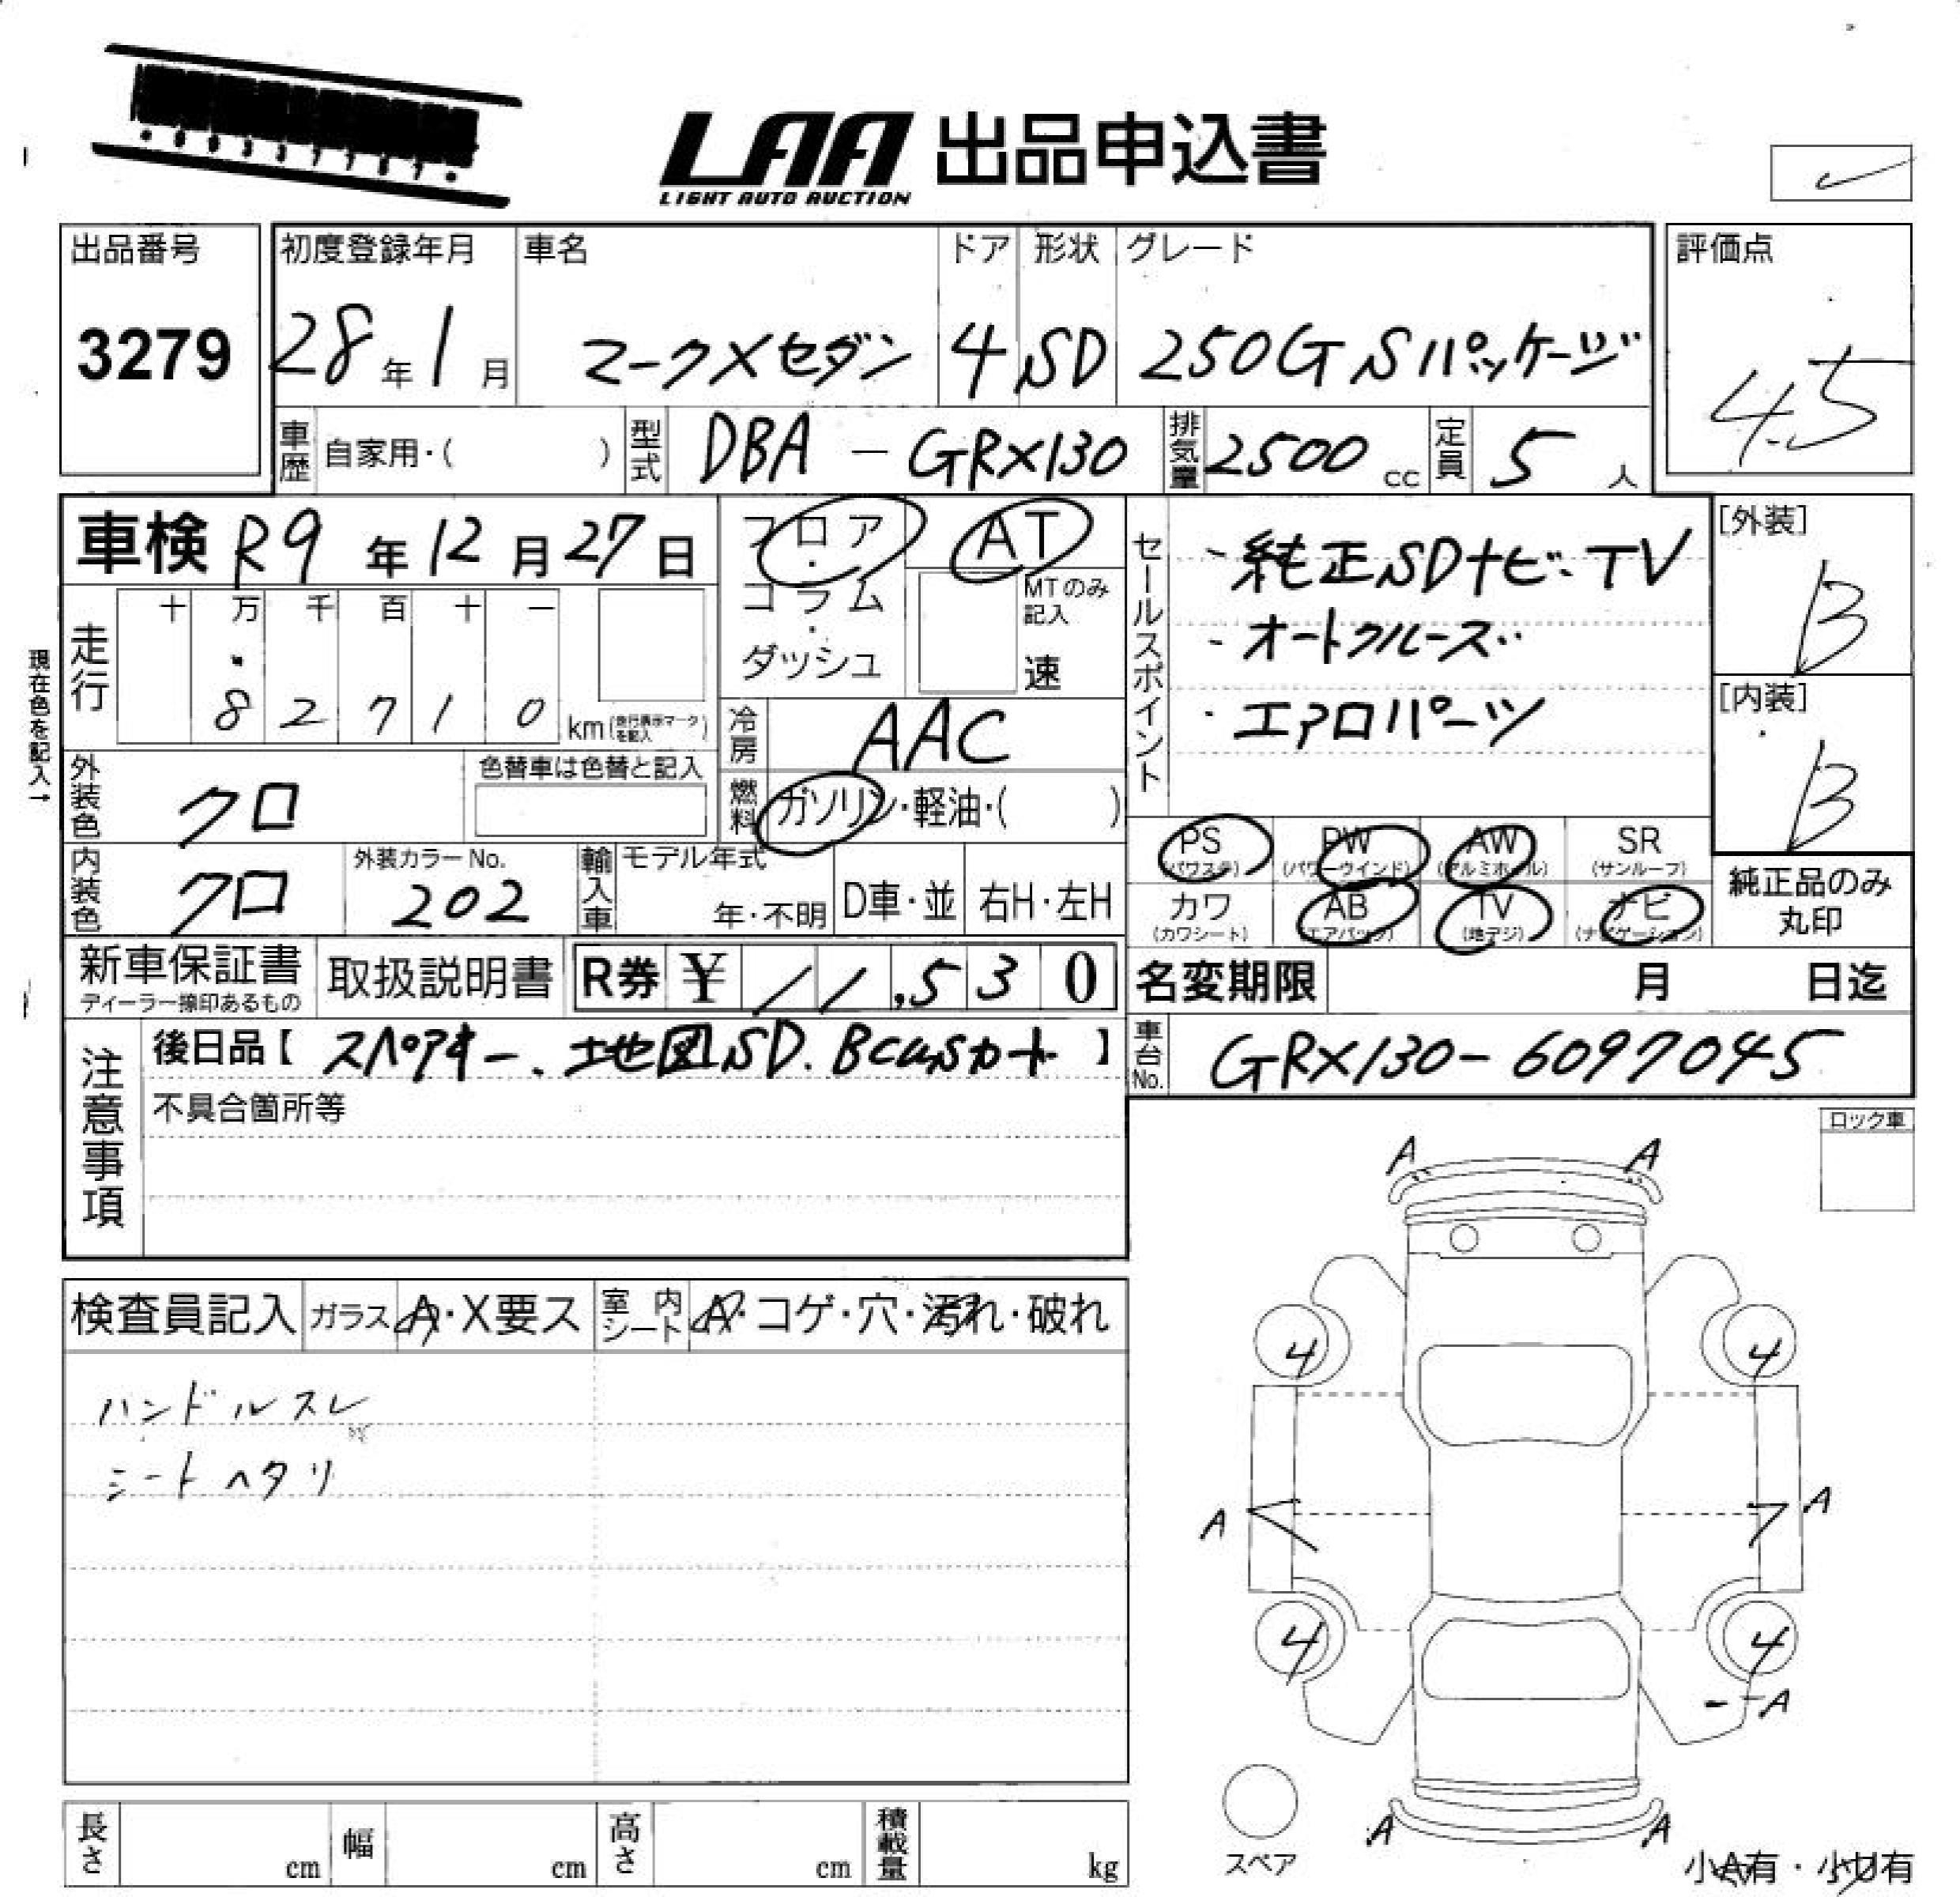 LAA 出品申込書
LIGHT AUTO AUCTION
出品番号
3279
初度登録年月
28年1月
車名
マークXセダン
ドア
4
形状
SD
グレード
250G Sパッケージ
評価点
4.5
車歴 自家用・( )
型式 DBA - GRX130
排気量 2500 cc
定員 5 人
車検 R9年12月27日
走行
十 万 千 百 十 一
8 2 7 1 0 km(走行表示マークを記入)
現在色を記入→
外装色 クロ
色替車は色替と記入
内装色 クロ
外装カラーNo.
202
輸入車
モデル年式
年・不明
D車・並
右H・左H
フロア・コラム・ダッシュ
AT
MTのみ記入
速
冷房 AAC
燃料 ガソリン・軽油・( )
セールスポイント
・純正SDナビ・TV
・オートクルーズ
・エアロパーツ
[外装]
B
[内装]
B
PS (パワステ)
PW (パワーウインド)
AW (アルミホイル)
SR (サンルーフ)
カワ (カワシート)
AB (エアバック)
TV (地デジ)
ナビ (ナビゲーション)
純正品のみ丸印
新車保証書
ディーラー捺印あるもの
取扱説明書
R券 ¥ 11,530
名変期限 月 日迄
注意事項
後日品【スペアキー、地図SD. BCASカード】
不具合箇所等
車台No. GRX130-6097045
ロック車
検査員記入
ガラス A・X要ス
室内シート A・コゲ・穴・汚れ・破れ
ハンドルスレ
シートヘタリ
A A
4 4
A A
4 4
A
A A
スペア
小A有・小U有
長さ cm
幅 cm
高さ cm
積載量 kg